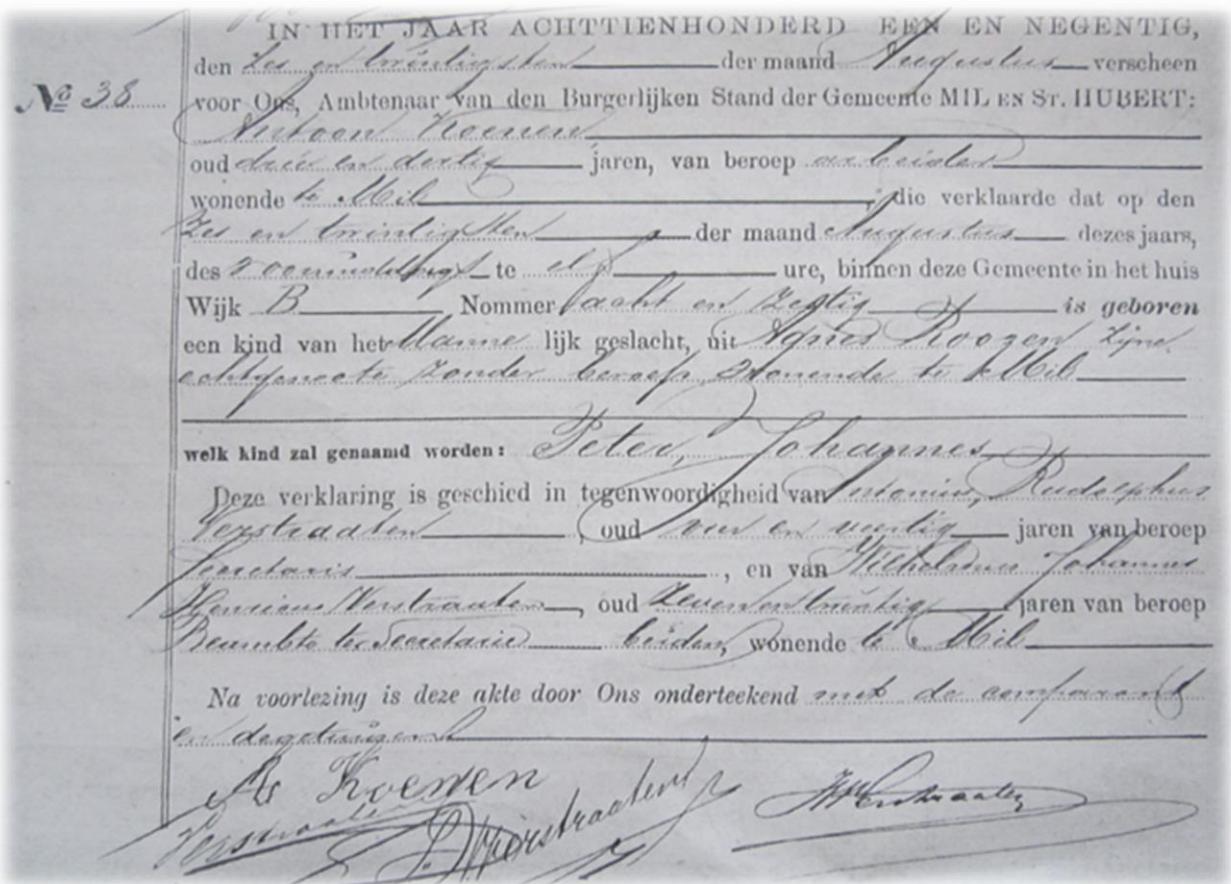 IN HET JAAR ACHTTIENHONDERD EEN EN NEGENTIG,
den Zes en twintigsten der maand Augustus verscheen
No 38 voor Ons, Ambtenaar van den Burgerlijken Stand der Gemeente MIL EN ST. HUBERT:
Antoon Koenen
oud drie en dertig jaren, van beroep arbeider
wonende te Mil, die verklaarde dat op den
Zes en twintigsten der maand Augustus dezes jaars,
des voormiddags te elf ure, binnen deze Gemeente in het huis
Wijk B Nommer acht en zestig is geboren
een kind van het Manne lijk geslacht, uit Agnes Roozen zijne
echtgenoote zonder beroep, wonende te Mil
welk kind zal genaamd worden: Peter, Johannes
Deze verklaring is geschied in tegenwoordigheid van Antonius, Rudolphus
Verstraaten, oud vier en veertig jaren van beroep
Secretaris, en van Wilhelmus Johannes
Henricus Verstraaten, oud Zeven en twintig jaren van beroep
Beambte ter Secretarie beiden, wonende te Mil
Na voorlezing is deze akte door Ons onderteekend met de comparant
en de getuigen
A Koenen
Verstraaten Verstraaten Verstraaten